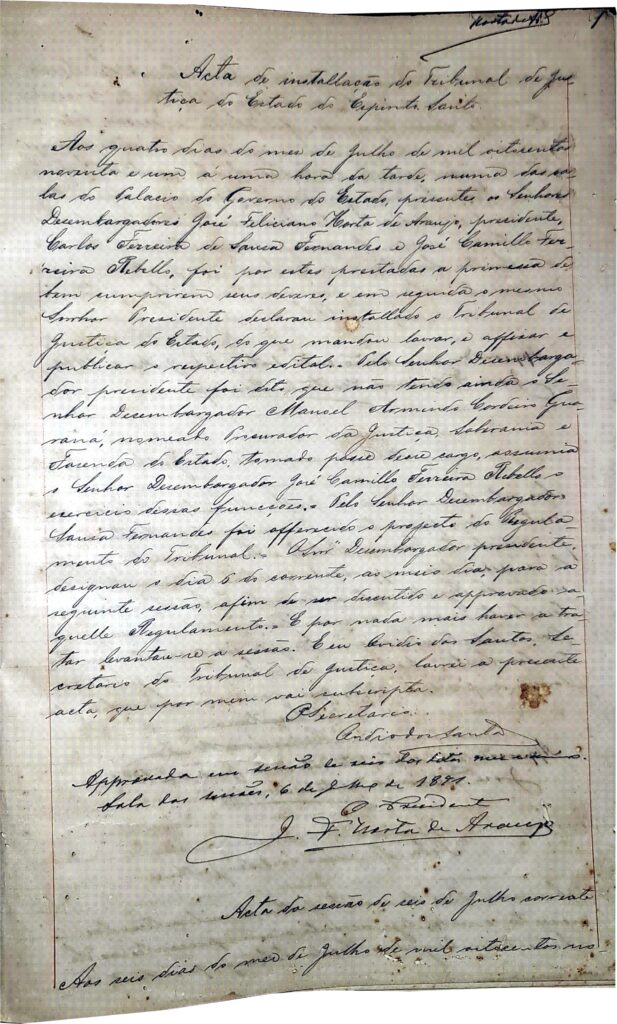 Horta de A.
1
Acta de installação do Tribunal de Jus
tiça do Estado do Espirito Santo.
Aos quatro dias do mez de Julho de mil oitocentos
noventa e um á uma hora da tarde, numa das sa-
las do Palacio do Governo do Estado, presentes os Senhores
Desembargadores José Feliciano Horta de Araujo, presidente,
Carlos Ferreira de Sousa Fernandes e José Camillo Fer-
reira Rebello, foi por estes prestadas a promessa de
bem cumprirem seus deveres, e em seguida o mesmo
Senhor Presidente declarou installado o Tribunal de
Justiça do Estado, do que mandou lavrar, e affixar e
publicar o respectivo edital.- Pelo Senhor Desembarga-
dor presidente foi dito, que não tendo ainda o Se-
nhor Desembargador Manoel Armindo Cordeiro Gua-
raná, nomeado Procurador da Justiça, Soberania e
Fazenda do Estado, tomado posse desse cargo, assumia
o Senhor Desembargador José Camillo Ferreira Rebello o
exercicio dessas funcções.- Pelo Senhor Desembargador
Sousa Fernandes foi offerecido o projecto do Regula-
mento do Tribunal.- O Snr Desembargador presidente,
designou o dia 6 do corrente, ao meio dia, para a
seguinte sessão, afim de ser discutido e approvado a-
quelle Regulamento.- E por nada mais haver a tra-
tar levantou-se a sessão. E eu Ovidio dos Santos, Se-
cretario do Tribunal de Justiça, lavrei a presente
acta, que por mim vai subscripta.
O Secretario.
Ovidio dos Santos
Approvada em sessão de seis
Sala das sessões, 6 de Julho de 1891.
O President
J. F. Horta de Araujo
Acta da sessão de seis de Julho corrente
Aos seis dias do mez de Julho de mil oitocentos no-